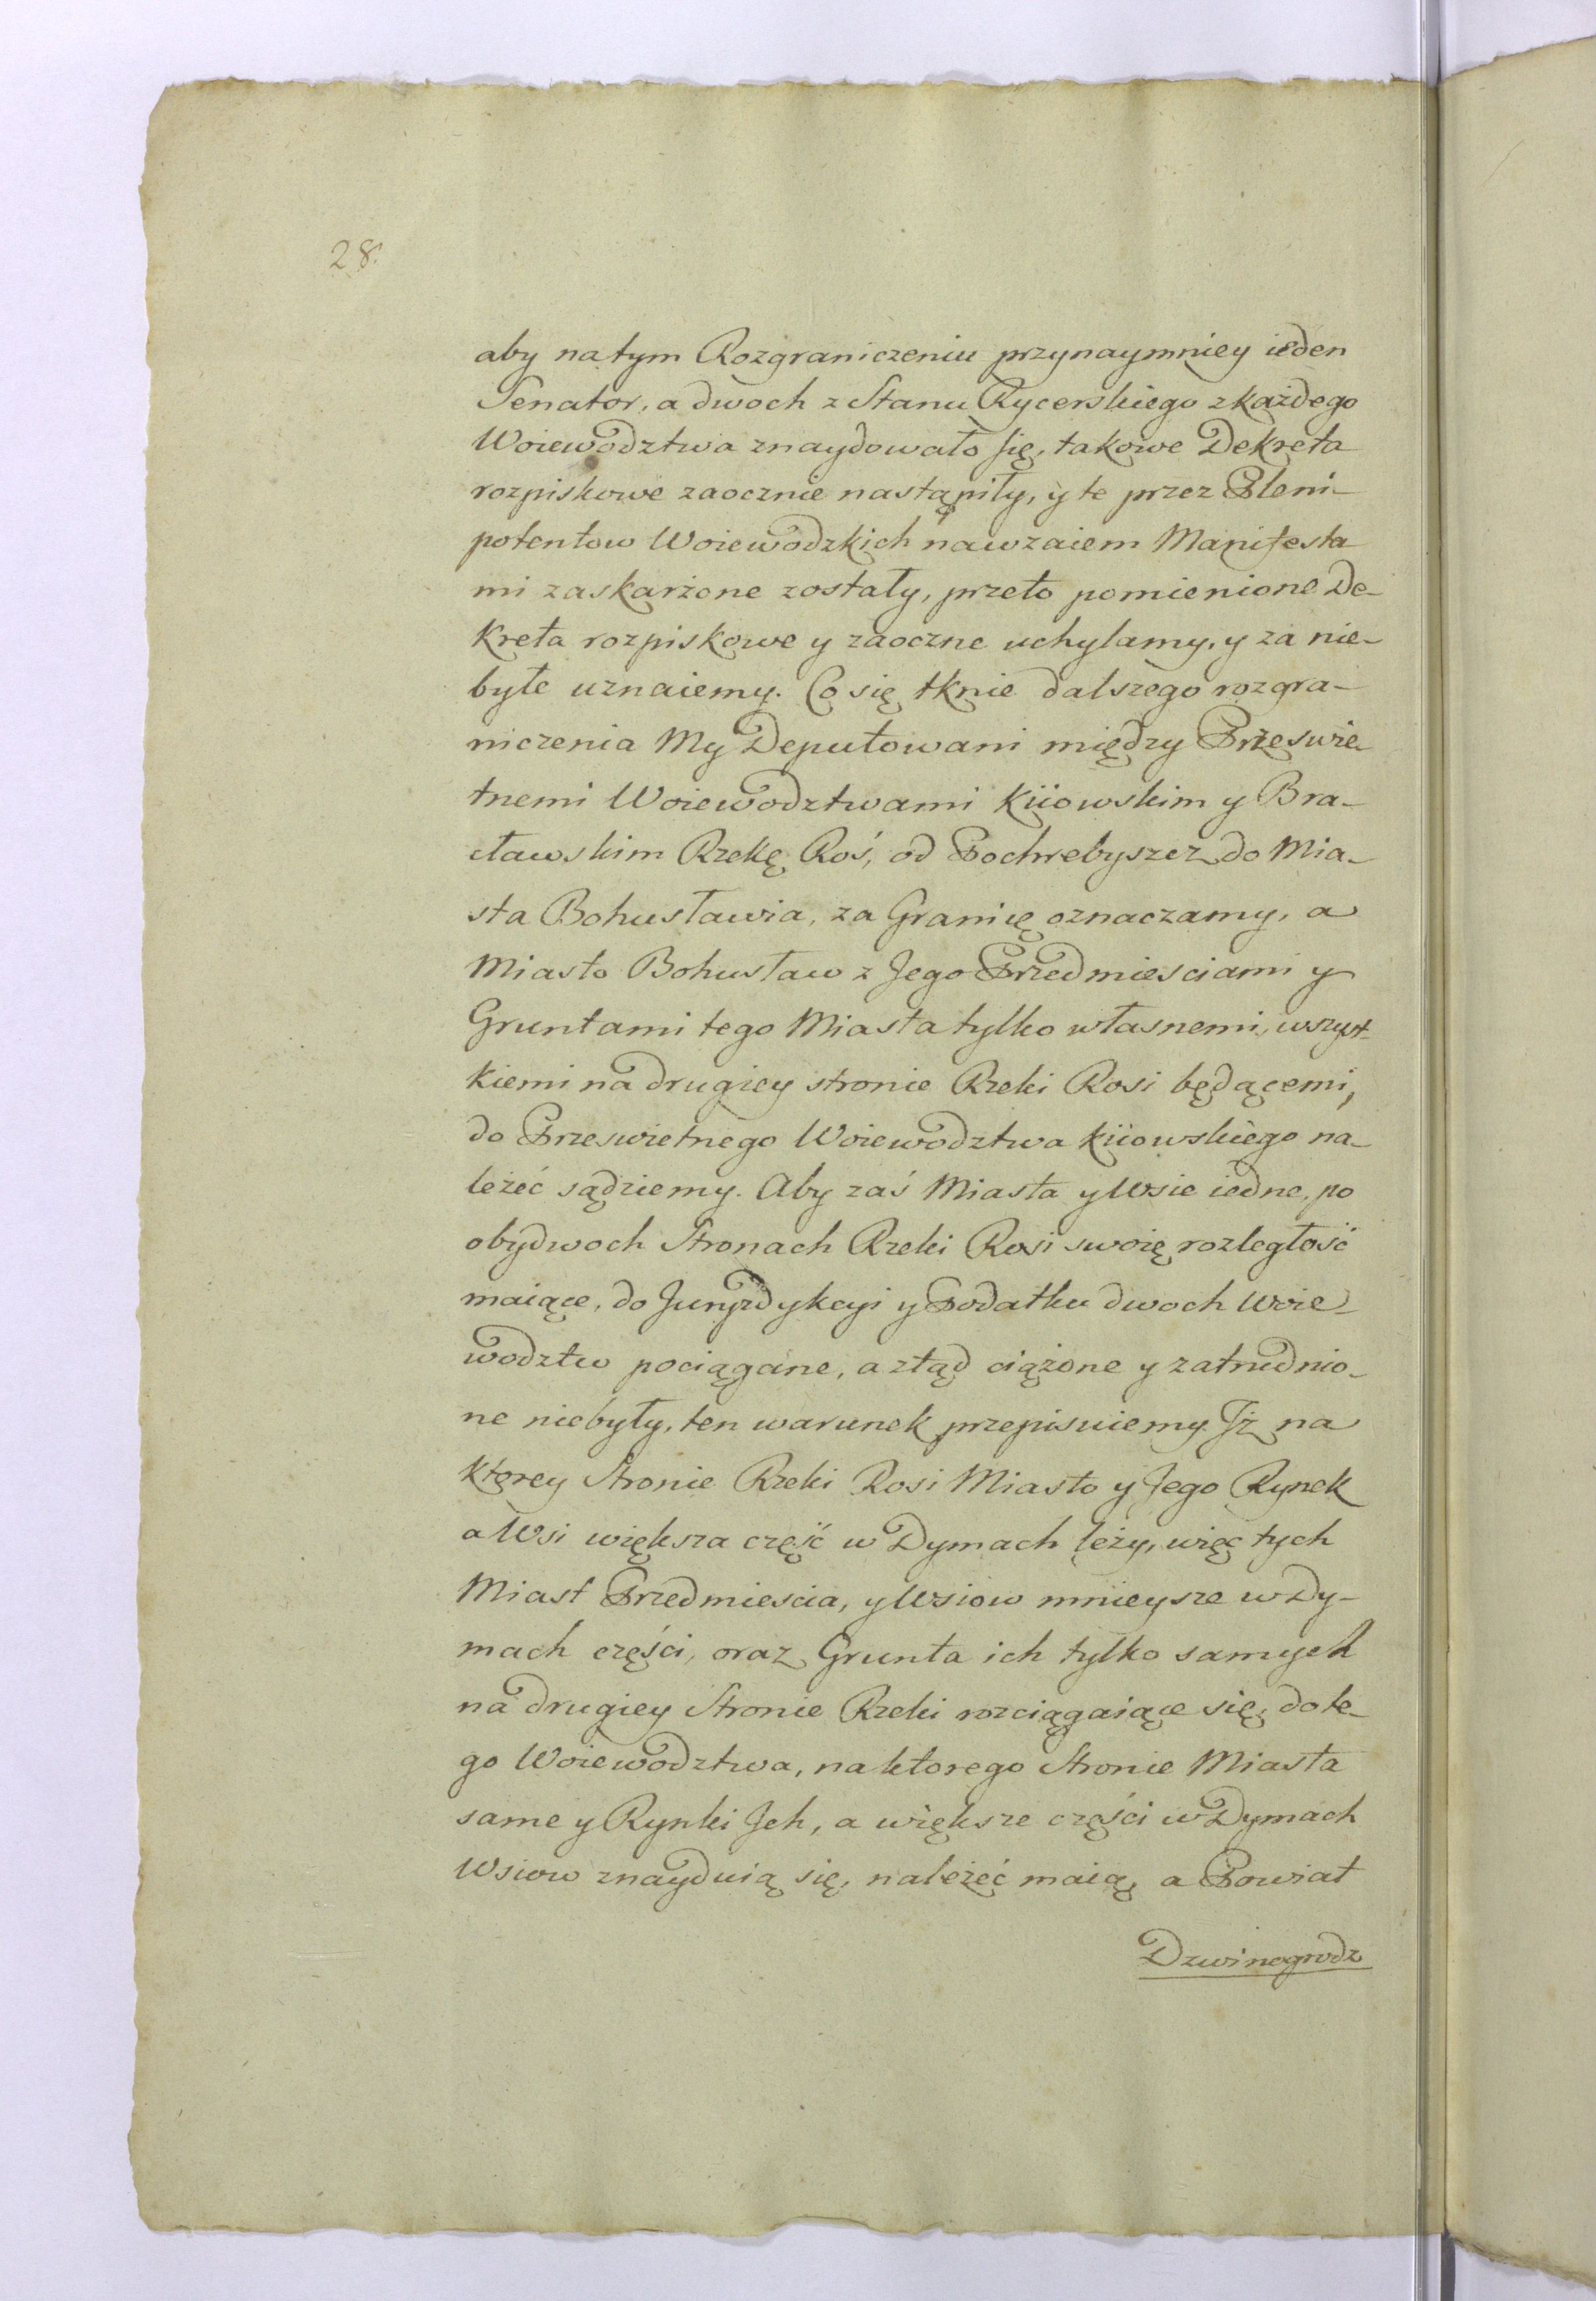 28.
aby natym Rozgraniczeniu przynaymniey ieden
Senator, a dwoch z Stanu Rycerskiego zkażdego
Woiewodztwa znaydowało się, takowe Dekreta
rozpiskowe zaocznie nastąpiły, y te przez Pleni-
potentow Woiewodzkich nawzaiem Manifesta
mi zaskarżone zostały, przeto pomienione De-
kreta rozpiskowe y zaoczne uchylamy, y za nie-
byłe uznaiemy. Co się tknie dalszego rozgra-
niczenia My Deputowani między Przeswie-
tnemi Woiewodztwami Kiiowskim y Bra-
cławskim Rzekę Roś, od Pochrebyszcz do Mia-
sta Bohusławia, za Granicę oznaczamy, a
Miasto Bohusław z Jego Przedmiesciami y
Gruntami tego Miasta tylko własnemi, wszyst-
kiemi na drugiey stronie Rzeki Rosi będącemi,
do Przeswietnego Woiewodztwa Kiiowskiego na-
leżeć sądziemy. Aby zaś Miasta y Wsie iedne, po
obydwoch Stronach Rzeki Rosi swoię rozległość
maiące, do Juryzdykcyi y Podatku dwoch Woie-
wodztw pociągane, a ztąd ciążone y zatrudnio-
ne niebyły, ten warunek przepisuiemy. Jż na
ktorey Stronie Rzeki Rosi Miasto y Jego Rynek
a Wsi większa część w Dymach leży, więc tych
Miast Przedmiescia, y Wsiow mnieysze w Dy-
mach części, oraz Grunta ich tylko samych
na drugiey Stronie Rzeki rozciągaiące się, do te-
go Woiewodztwa, na ktorego Stronie Miasta
same y Rynki Jch, a większe części w Dymach
Wsiow znayduią się, należeć maią, a Powiat
Dzwinogrodz